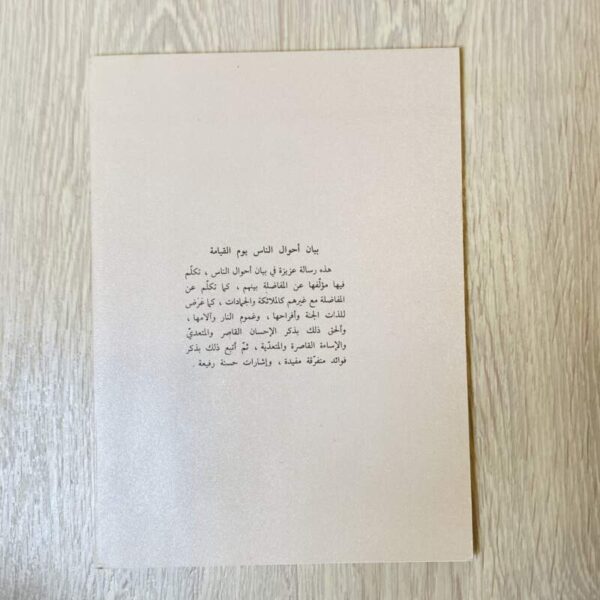 بيان أحوال الناس يوم القيامة
هذه رسالة عزيزة في بيان أحوال الناس ، تكلّم
فيها مؤلّفها عن المفاضلة بينهم ، كما تكلّم عن
المفاضلة مع غيرهم كالملائكة والجمادات ، كما عَرَض
للذات الجنة وأفراحها ، وغموم النار وآلامها ،
وألحق ذلك بذكر الإحسان القاصِر والمتعديّ
والإساءة القاصرة والمتعدّية ، ثمّ أتبع ذلك بذكر
فوائد متفرّقة مفيدة ، وإشارات حسنة رفيعة